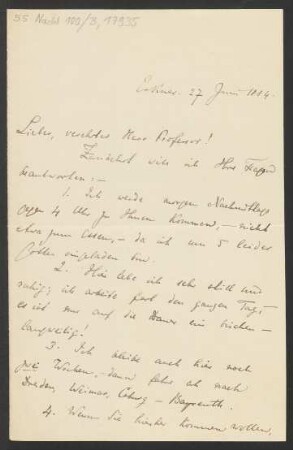 55 Nachl 100/3, 17935
Erkner. 27 Juni 1884.
Lieber, verehrter Herr Professor!
Zunächst will ich Ihre Fragen
beantworten: –
1. Ich werde morgen Nachmittag
gegen 4 Uhr zu Ihnen kommen, – nicht
etwa zum Essen, – da ich um 5 leider
eingeladen bin.
2. Hier lebe ich sehr still und
ruhig; ich arbeite fast den ganzen Tag;
es ist nur auf die Dauer ein bischen
langweilig!
3. Ich bleibe auch hier noch
zwei Wochen, – dann fahre ich nach
Dresden, Weimar, Coburg – Bayreuth.
4. Wenn Sie hierher kommen wollen,